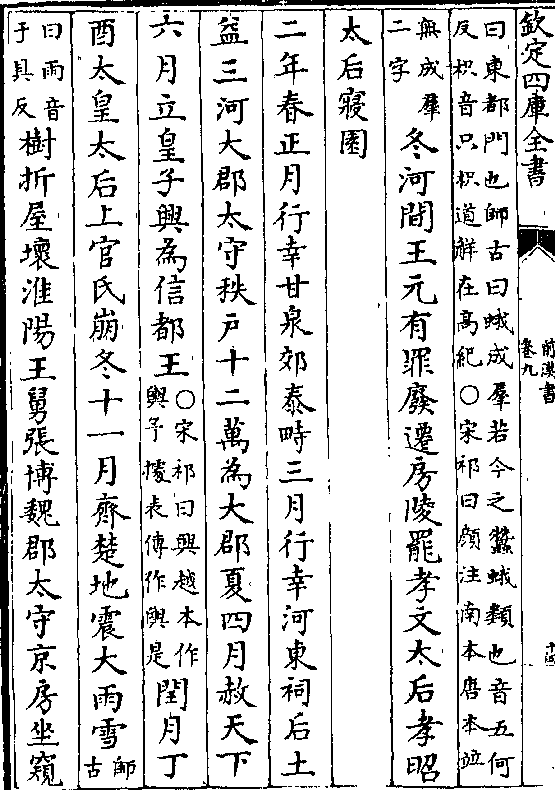 欽定四庫全書
前漢書
卷九
十四
曰東都門也師古曰蛾成羣若今之蠶蛾類也音五何
反枳音只枳道觧在高紀○宋祁曰顔注南本唐本竝
無成羣
二字
冬河間王元有罪廢遷房陵罷孝文太后孝昭
太后寢園
二年春正月行幸甘泉郊泰畤三月行幸河東祠后土
益三河大郡太守秩戸十二萬為大郡夏四月赦天下
六月立皇子興為信都王
○宋祁曰興越本作
輿予據表傳作興是
閏月丁
酉太皇太后上官氏崩冬十一月齊楚地震大雨雪
師
古
曰雨音
于具反
樹折屋壞淮陽王舅張博魏郡太守京房坐窺